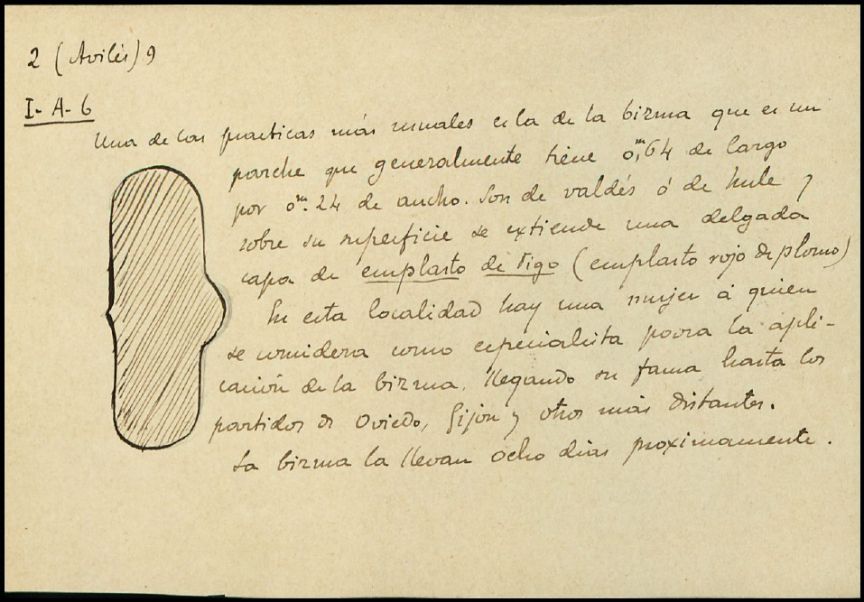 2 (Avilés) 9
I-A-6
Una de las practicas más usuales es la de la bizma que es un
parche que generalmente tiene 0,m64 de largo
por 0m.24 de ancho. Son de valdés ó de hule y
sobre su superficie se extiende una delgada
capa de emplasto de Vigo (emplasto rojo de plomo)
En esta localidad hay una mujer á quien
se considera como especialista para la apli-
cación de la bizma, llegando su fama hasta los
partidos de Oviedo, Gijón y otros más distantes.
La bizma la llevan ocho dias proximamente.